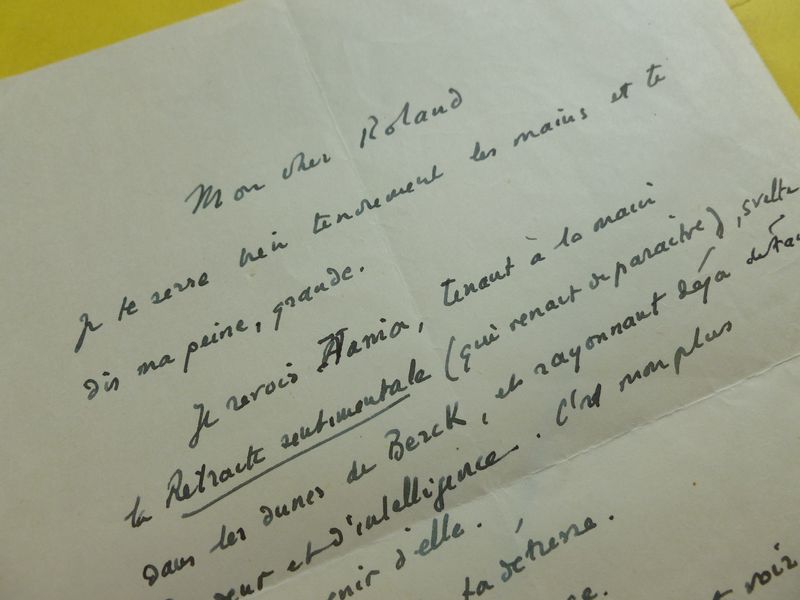 Mon cher Roland
Je te serre bien tendrement les mains et te
dis ma peine, grande.
Je revois Hania, tenant à la main
la Retraite sentimentale (qui venait de paraître), svelte
dans les dunes de Berck, et rayonnant déjà
et d'intelligence. C'est mon plus
d'elle.
ta détresse.
voir